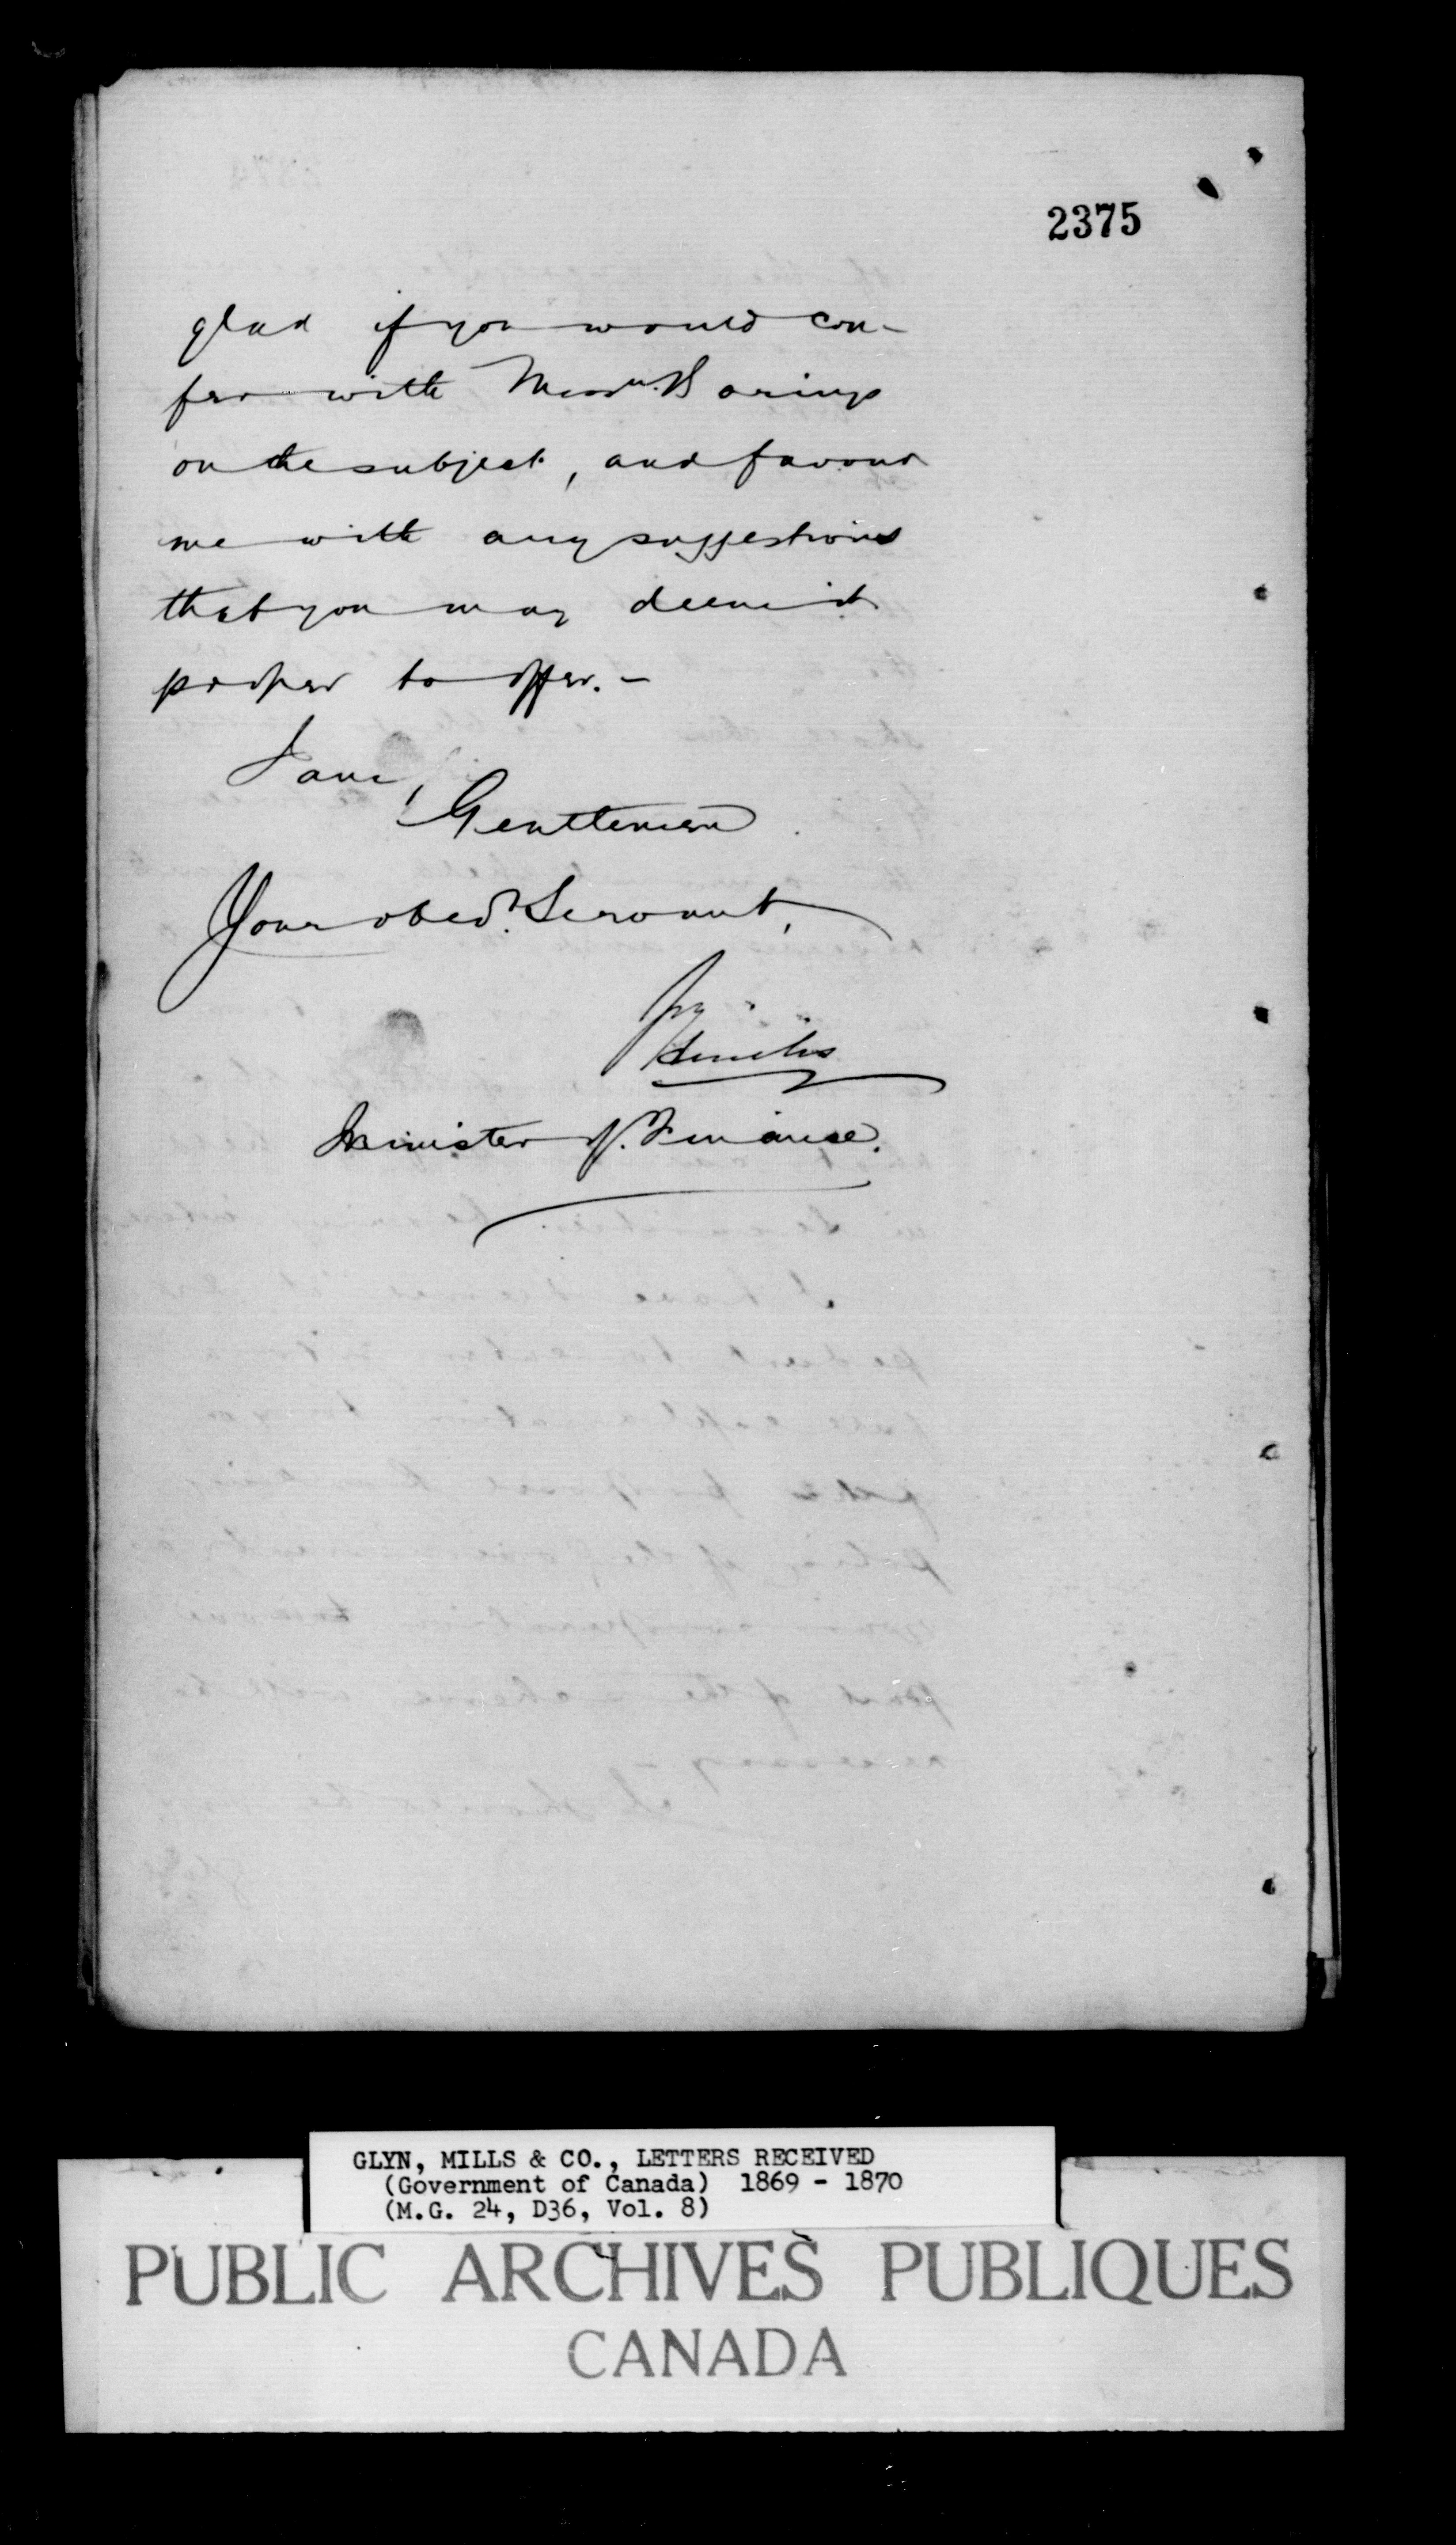 2375
glad if you would con-
fer with Messrs. Barings
on the subject, and favour
me with any suggestions
that you may deem it
proper to offer. –
I am,
Gentlemen
Your obedt. Servant,
Minister of Finance.
GLYN, MILLS & CO., LETTERS RECEIVED
(Government of Canada) 1869 - 1870
(M.G. 24, D36, Vol. 8)
PUBLIC ARCHIVES PUBLIQUES
CANADA